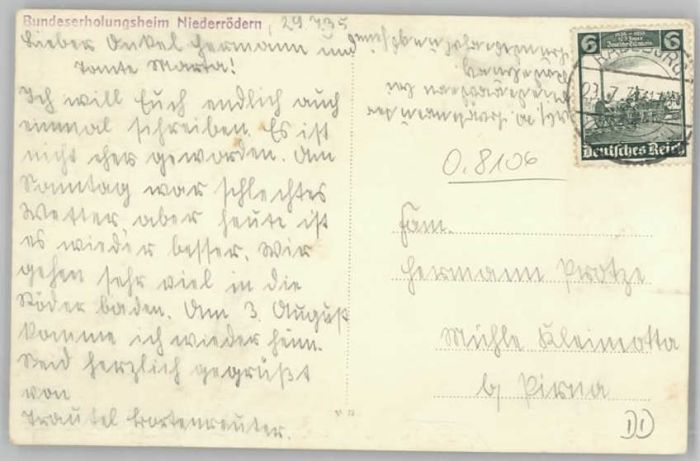 Bundeserholungsheim Niederrödern, 29.7.35
Lieber Onkel Hermann und
Tante Marta!
Ich will Euch endlich auch
einmal schreiben. Es ist
nicht eher geworden. Am
Sonntag war schlechtes
Wetter aber heute ist
es wieder besser. Wir
gehen sehr viel in die
Röder baden. Am 3. August
komme ich wieder heim.
Seid herzlich gegrüßt
von
Trautel
6
Deutsches Reich
0.8106
Fam.
Hermann Protze
Mühle
b/ Pirna
DD